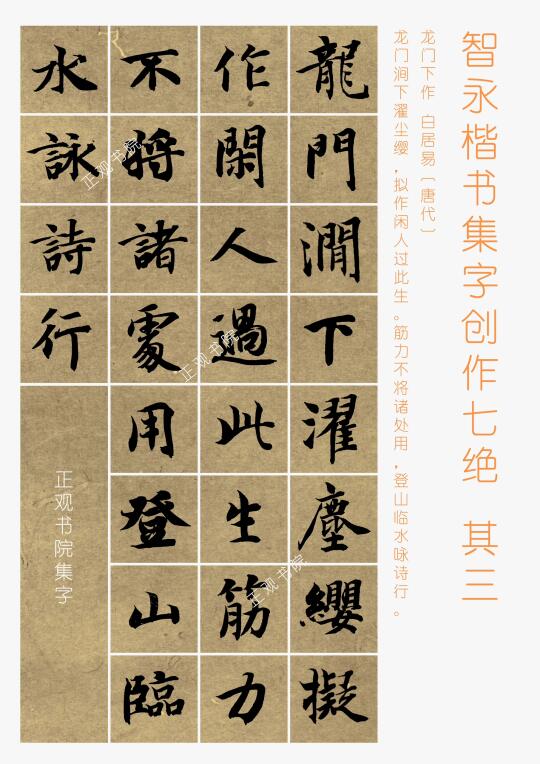 智永楷书集字创作七绝 其三
龙门下作 白居易〔唐代〕
龙门涧下濯尘缨，拟作闲人过此生。筋力不将诸处用，登山临水咏诗行。
龍門澗下濯塵纓擬
作閑人過此生筋力
不將諸處用登山臨
水詠詩行
正观书院集字
正观书院
正观书院
正观书院